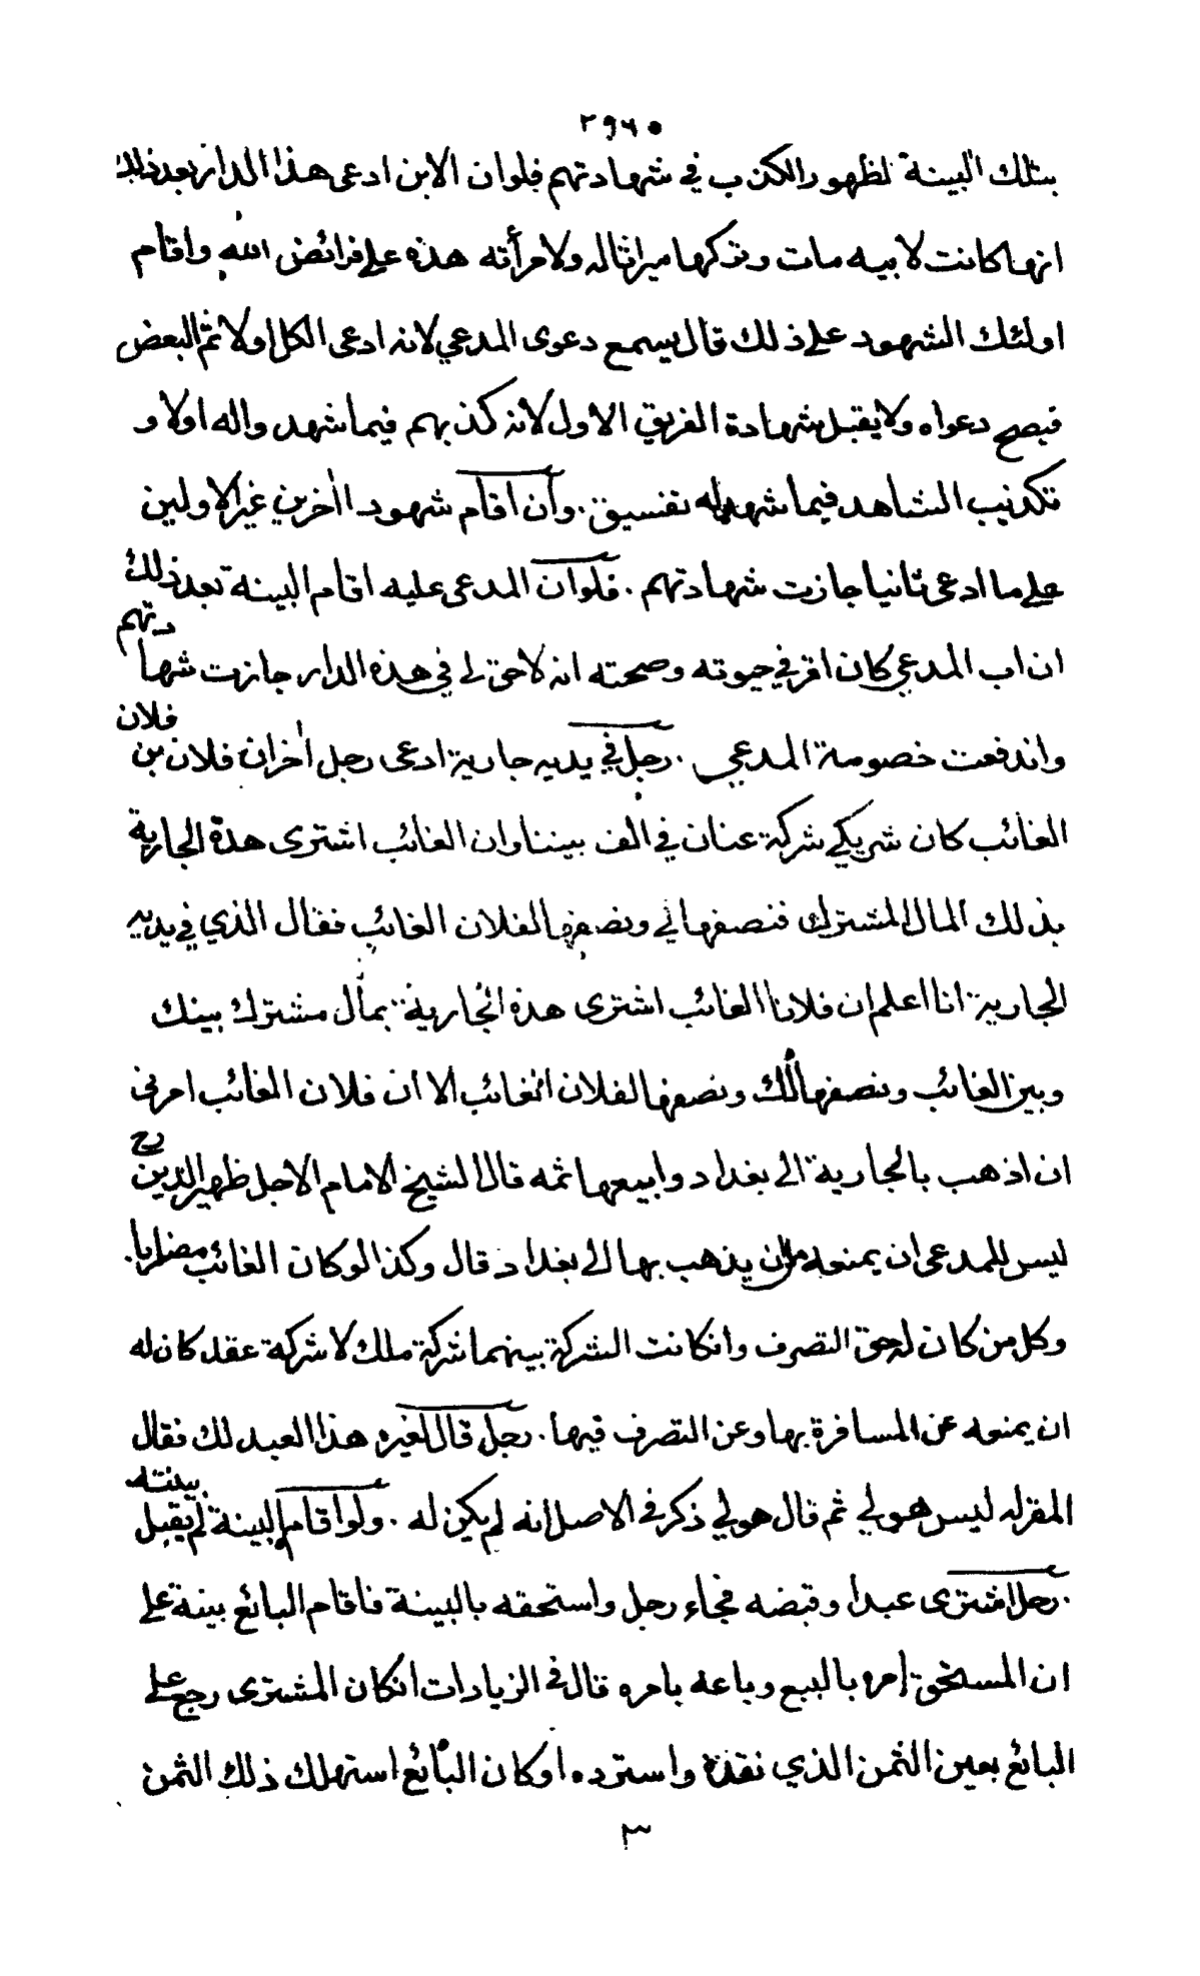 ٢٩٦٥
بتلك البينة لظهور الكذب في شهادتهم فلو ان الابن ادعى هذا الدار بعد ذلك
انها كانت لابيه مات وتركها ميراثا له ولامرأته هذه على فرائض الله واقام
اولئك الشهود على ذلك قال يسمع دعوى المدعي لانه ادعى الكل اولا ثم البعض
فيصح دعواه ولا يقبل شهادة الفريق الاول لانه كذبهم فيما شهدوا له اولا و
تكذيب الشاهد فيما شهد له تفسيق . وان اقام شهود اأخرين غير الاولين
على ما ادعى ثانيا جازت شهادتهم . فلو ان المدعى عليه اقام البينة بعد ذلك
ان اب المدعي كان اقر في حيوته وصحته انه لا حق لي في هذه الدار جازت شهادتهم
واندفعت خصومة المدعي . رجل في يديه جارية ادعى رجل أخر ان فلان بن فلان
الغائب كان شريكي شركة عنان في الف بيننا وان الغائب اشترى هذة الجارية
بذلك المال المشترك فنصفها لي ونصفها لفلان الغائب فقال الذي في يديه
الجارية انا اعلم ان فلانا الغائب اشترى هذه الجارية بمال مشترك بينك
وبين الغائب ونصفها لك ونصفها لفلان الغائب الا ان فلان الغائب امرني
ان اذهب بالجارية الى بغداد وابيعها ثمه قال الشيخ الامام الاجل ظهير الدين رح
ليس للمدعى ان يمنعه من ان يذهب بها الى بغداد قال وكذا لو كان الغائب مضاربا .
وكل من كان له حق التصرف وانكانت الشركة بينهما شركة ملك لا شركة عقد كان له
ان يمنعه عن المسافرة بها وعن التصرف فيها . رجل قال لغيره هذا العبد لك فقال
المقر له ليس هو لي ثم قال هو لي ذكر في الاصل انه لم يكن له . ولو اقام البينة لم يقبل بينته
. رجل اشترى عبدا وقبضه فجاء رجل واستحقه بالبينة فاقام البائع بينة على
ان المستحق امره بالبيع وباعه بامره قال في الزيادات انكان المشترى رجع على
البائع بعين الثمن الذي نقدة واسترده او كان البائع استهلك ذلك الثمن
٣